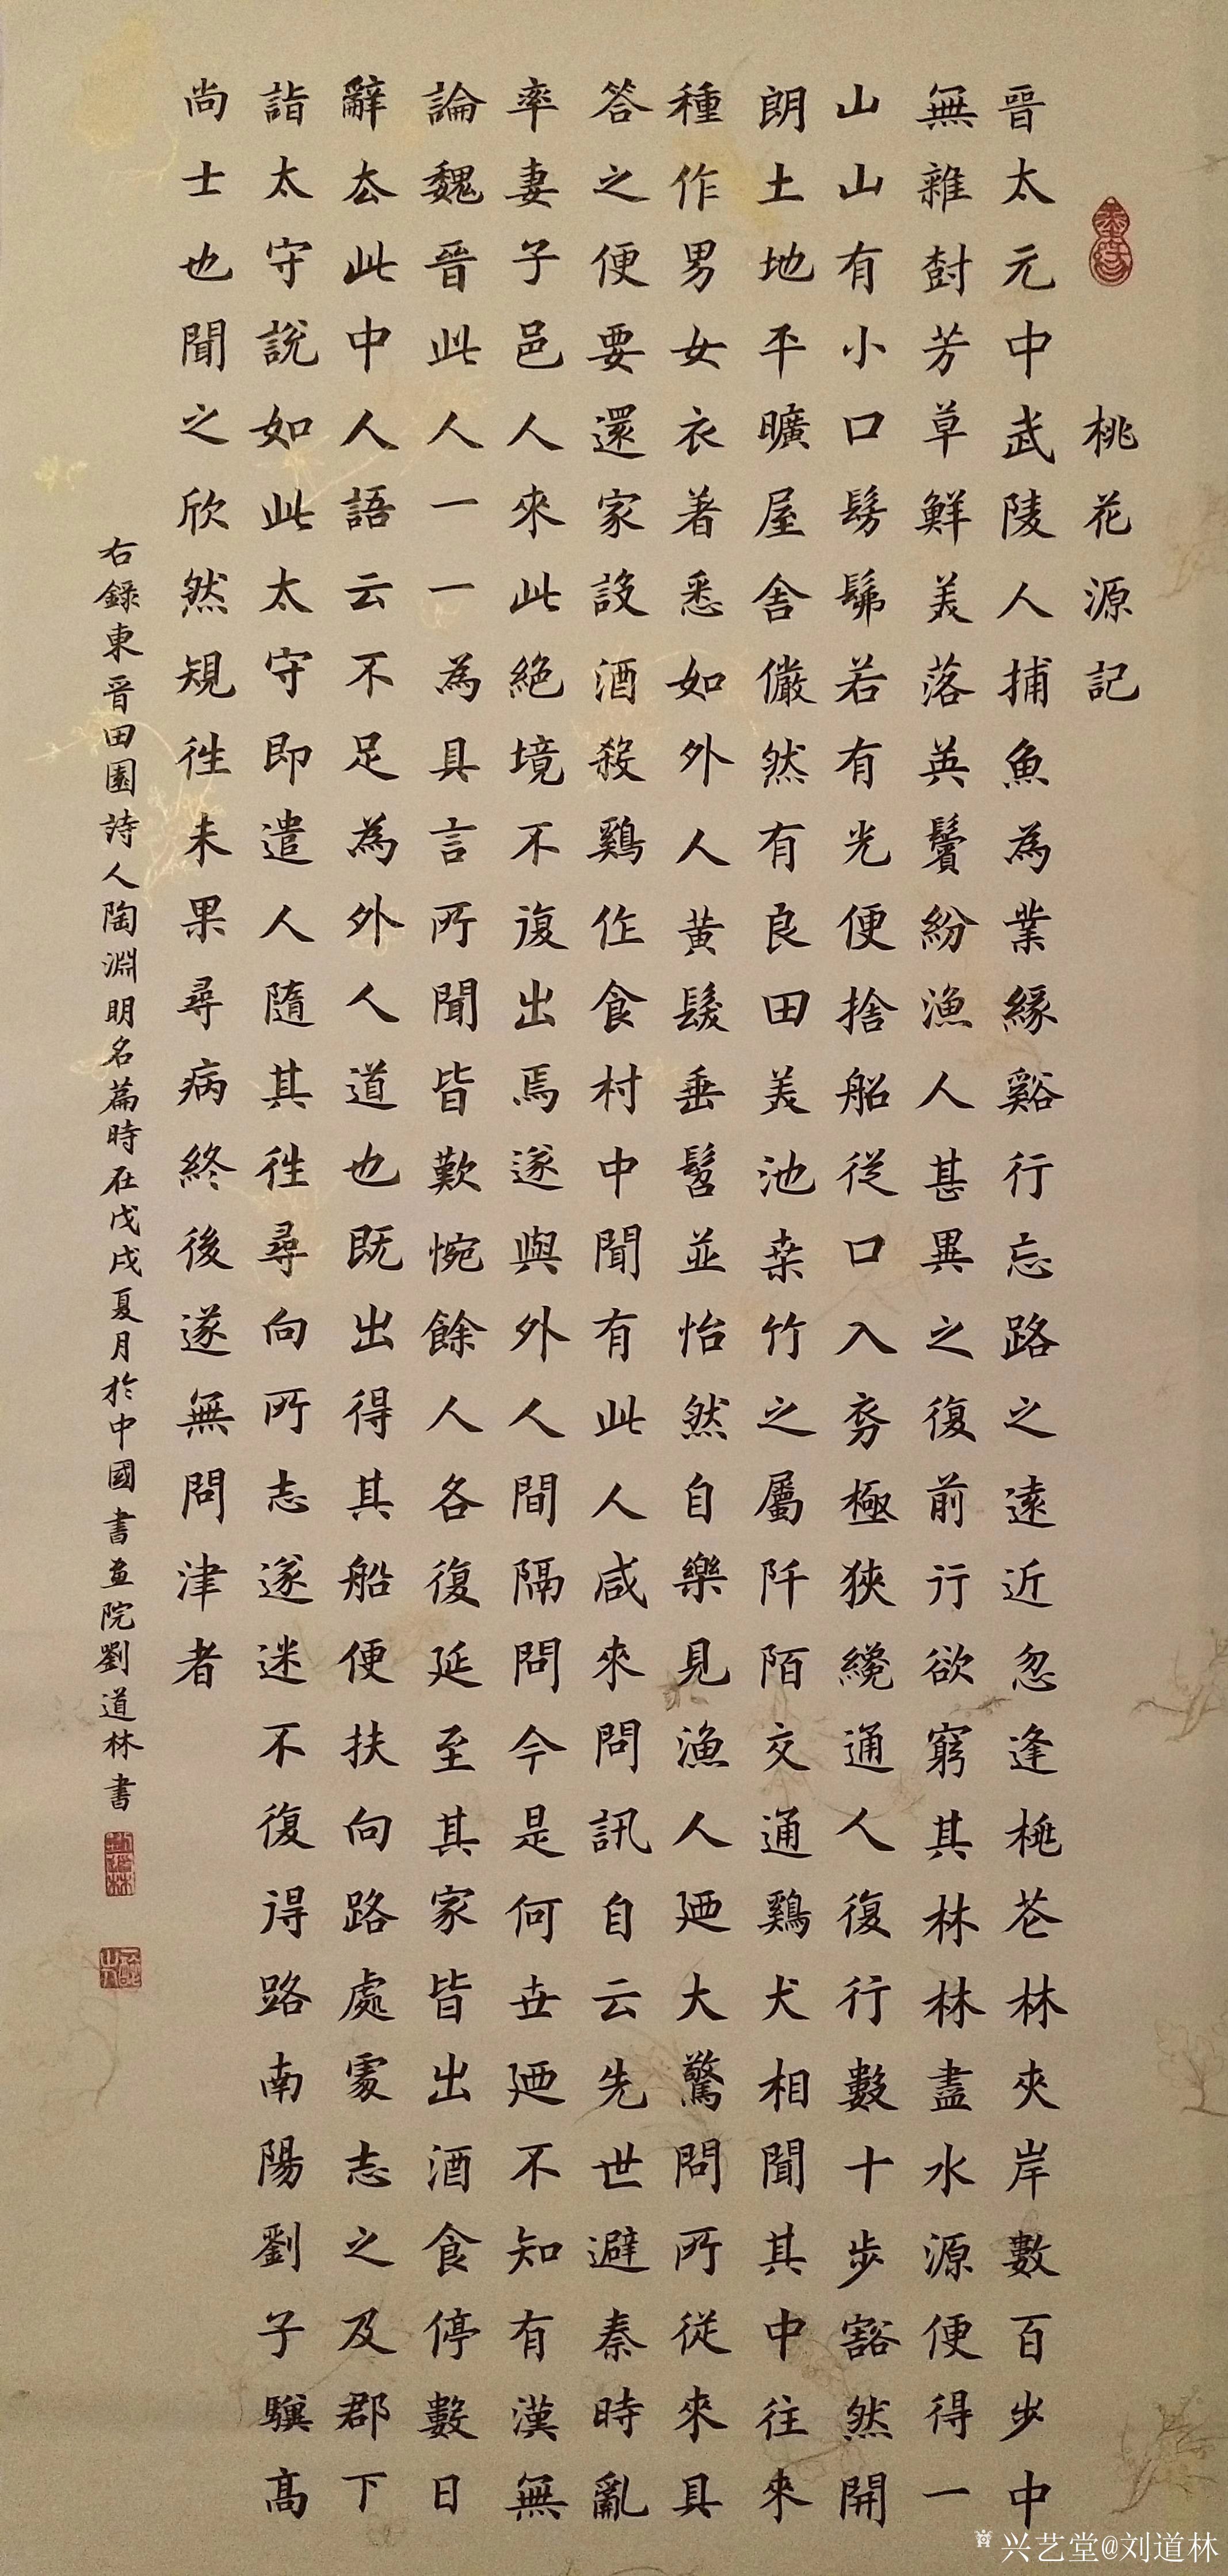 桃花源記
晉太元中武陵人捕魚為業緣谿行忘路之遠近忽逢桃花林夾岸數百步中
無雜樹芳草鮮美落英鬢紛漁人甚異之復前行欲窮其林林盡水源便得一
山山有小口髣髴若有光便捨船從口入初極狹纔通人復行數十步豁然開
朗土地平曠屋舍儼然有良田美池桑竹之屬阡陌交通鷄犬相聞其中往來
種作男女衣著悉如外人黃髮垂髫並怡然自樂見漁人廼大驚問所從來具
答之便要還家設酒殺鷄作食村中聞有此人咸來問訊自云先世避秦時亂
率妻子邑人來此絕境不復出焉遂與外人間隔問今是何世廼不知有漢無
論魏晉此人一一為具言所聞皆歎惋餘人各復延至其家皆出酒食停數日
辭去此中人語云不足為外人道也既出得其船便扶向路處處志之及郡下
詣太守說如此太守即遣人隨其往尋向所志遂迷不復得路南陽劉子驥高
尚士也聞之欣然規往未果尋病終後遂無問津者
右錄東晉田園詩人陶淵明名篇時在戊戌夏月於中國書畫院劉道林書
兴艺堂@刘道林